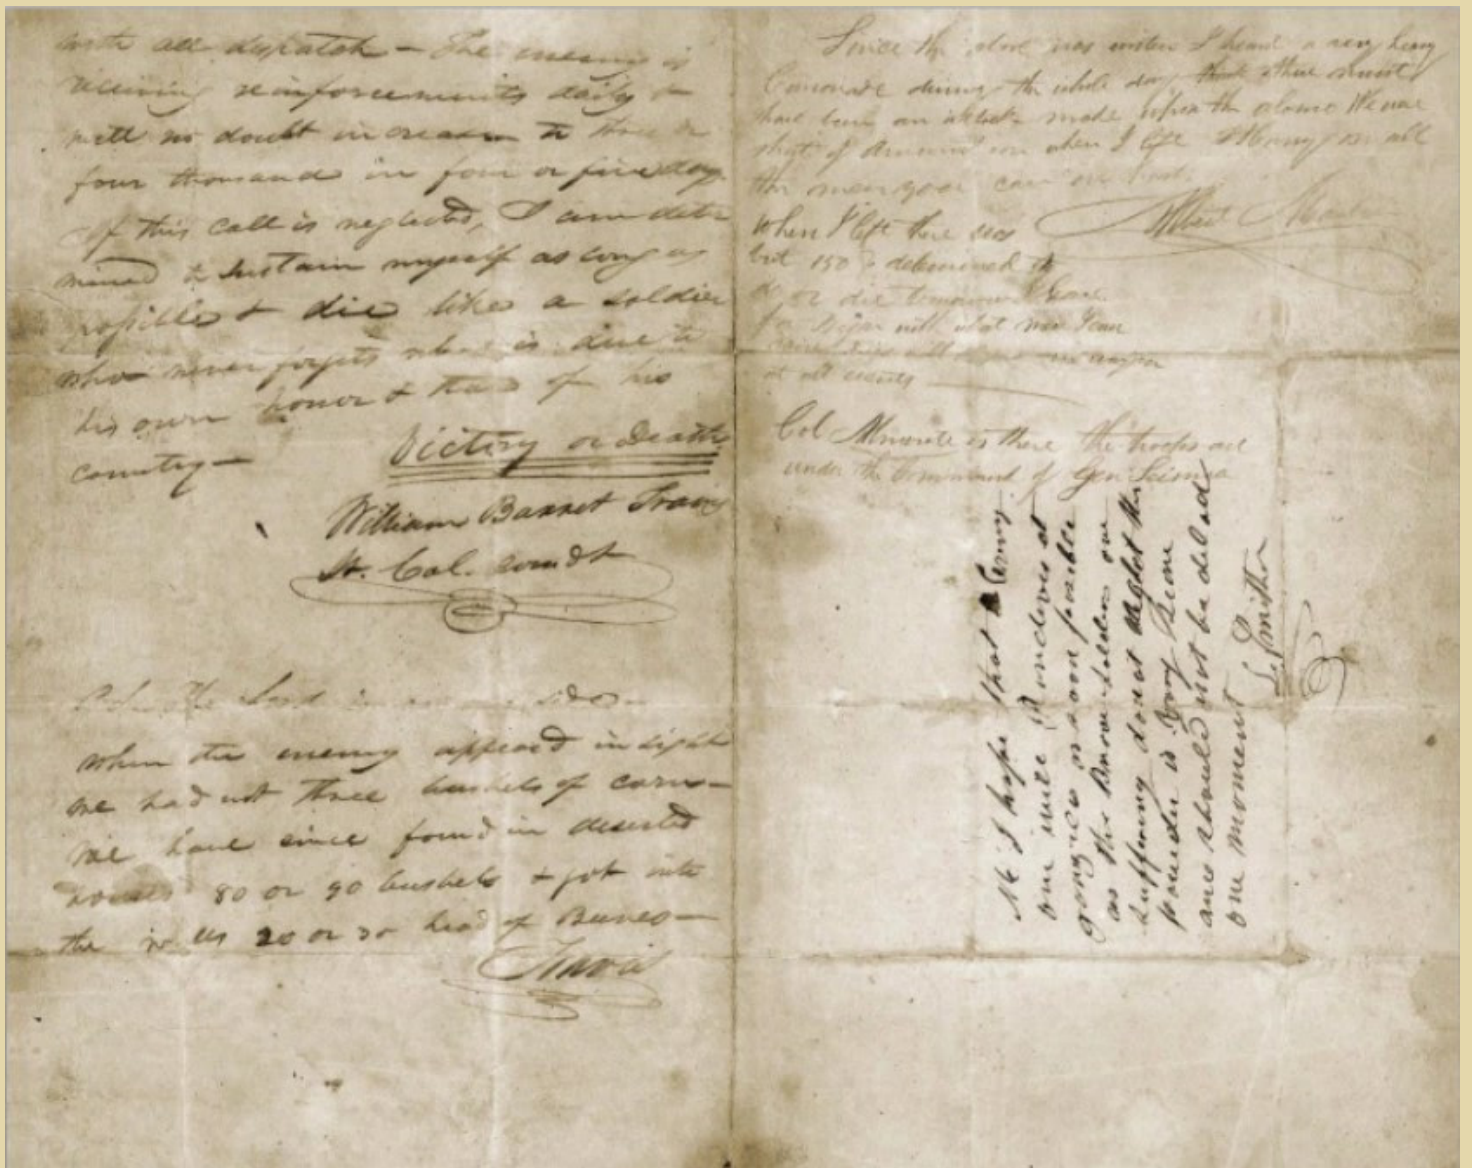 with all dispatch — The enemy is
receiving reinforcements daily &
will no doubt increase to three or
four thousand in four or five days.
If this call is neglected, I am deter
mined to sustain myself as long as
possible & die like a soldier
who never forgets what is due to
his own honor & that of his
country —
Victory or Death
William Barret Travis
Lt. Col. comdt
P.S. The Lord is on our side —
When the enemy appeard in sight
we had not three bushels of corn —
We have since found in deserted
houses 80 or 90 bushels & got into
the walls 20 or 30 head of Beeves —
Travis
Since the above was writen I heard a very heavy
Canonade during the whole day think there must
have been an attack made upon the alamo We were
short of Amunition when I left Hurry on all
the men you can
Albert Martin
When I left there was
but 150 determined to
do or die tomorrow I leave
for Bejar with what men I can
at all events
Col Almonte is there the troops are
under the Command of Gen Seisma
I hope that
Gonzales as soon possible
as the Brave Soldiers are
suffering do not neglect the
powder is very scarce
and should not be delad
one moment
L. Smither